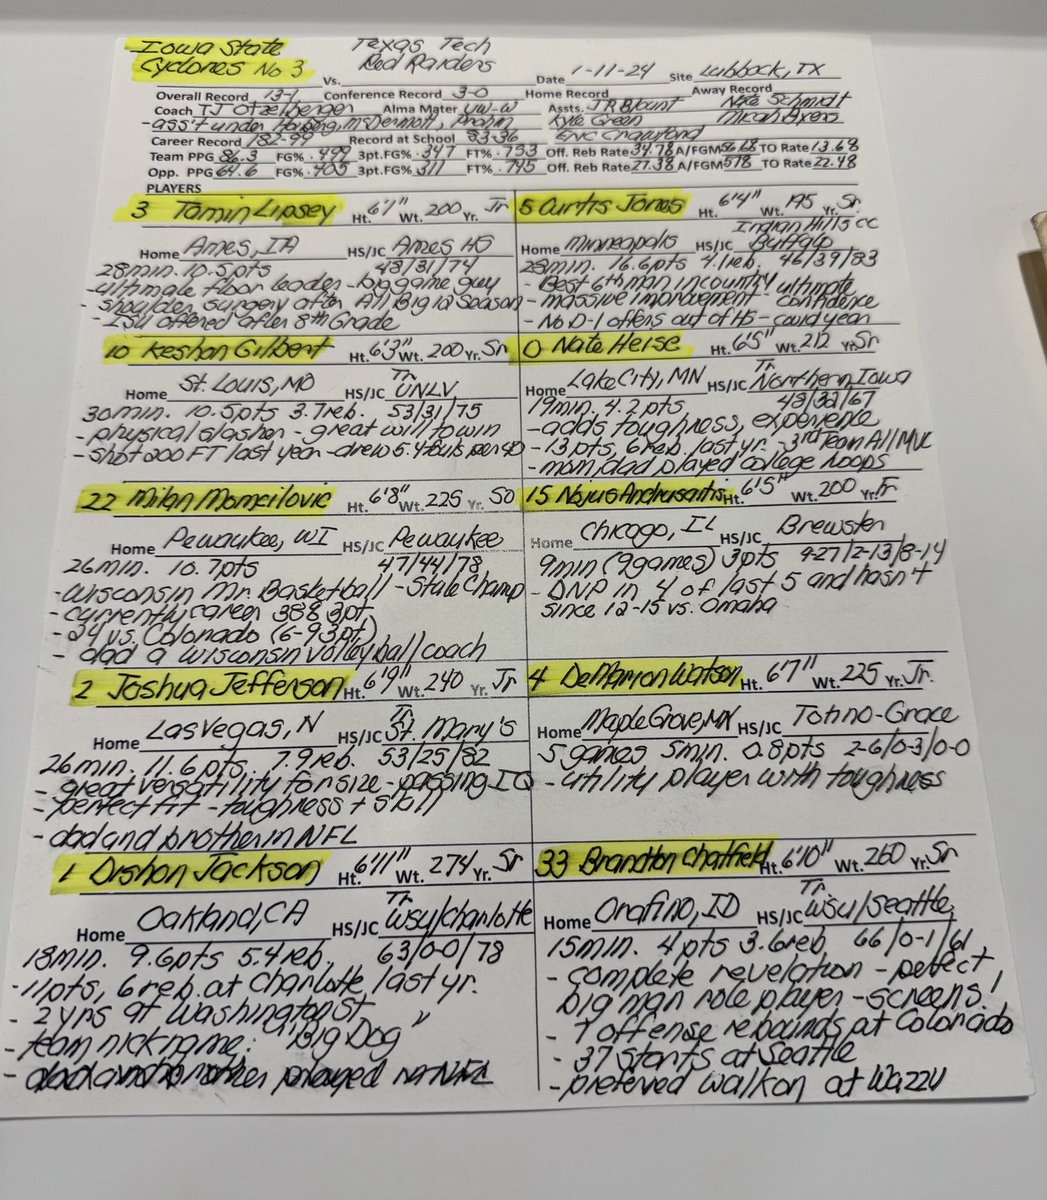 Iowa State Texas Tech
Cyclones No 3 Vs. Red Raiders Date 1-11-24 Site Lubbock, TX
Overall Record 13-1 Conference Record 3-0 Home Record Away Record
Coach TJ Otzelberger Alma Mater UW-W Assts. JR Blount Nate Schmidt
- ass't under Hoiberg, McDermott, Prohm Kyle Green Micah Byers
Career Record 182-99 Record at School 83-36 Eric Crawford
Team PPG 86.3 FG% .499 3pt.FG% .347 FT% .753 Off. Reb Rate 34.78 A/FGM 56.68 TO Rate 13.68
Opp. PPG 64.6 FG% .405 3pt.FG% .311 FT% .745 Off. Reb Rate 27.38 A/FGM 578 TO Rate 22.48
PLAYERS
3 Tamin Lipsey Ht. 6'1" Wt. 200 Yr. Jr
Home Ames, IA HS/JC Ames HS
28min. 10.5pts 48/31/74
- ultimate floor leader - big game guy
- shoulder surgery after All Big 12 Season
- LSU offered after 8th Grade
5 Curtis Jones Ht. 6'4" Wt. 195 Yr. Sr.
Indian Hills CC
Home Minneapolis HS/JC Buffalo
28min. 16.6pts 4.1reb. 46/39/83
- Best 6th man in country ultimate
- massive improvement - confidence
- No D-1 offers out of HS - covid year
10 Keshon Gilbert Ht. 6'3" Wt. 200 Yr. Sr
Tr
Home St. Louis, MO HS/JC UNLV
30min. 10.5pts 3.7reb. 53/31/75
- physical slasher - great will to win
- shot 200 FT last year - drew 5.4 fouls per 40
0 Nate Heise Ht. 6'5" Wt. 212 Yr. Sr
Tr
Home Lake City, MN HS/JC Northern Iowa
19min. 4.2pts 48/32/67
- adds toughness, experience
- 13pts, 6reb. last yr. - 3rd Team All MVC
- mom, dad played college hoops
22 Milan Momcilovic Ht. 6'8" Wt. 225 Yr. So
Home Pewaukee, WI HS/JC Pewaukee
26min. 10.7pts 47/44/78
- Wisconsin Mr. Basketball - State Champ
- currently career 388 3pt.
- 24 vs. Colorado (6-9 3pt)
- dad a Wisconsin volleyball coach
15 Nojus Ht. 6'5" Wt. 200 Yr. Fr
Home Chicago, IL HS/JC Brewster
9min (9games) 3pts 9-27/2-13/8-14
- DNP in 4 of last 5 and hasn't
since 12-15 vs. Omaha
2 Joshua Jefferson Ht. 6'9" Wt. 240 Yr. Jr
Tr
Home Las Vegas, N HS/JC St. Mary's
26min. 11.6pts. 7.9reb. 53/25/82
- great versatility for size - passing IQ
- perfect fit - toughness + skill
- dad and brother in NFL
4 DeMarrion Watson Ht. 6'7" Wt. 225 Yr. Jr.
Home Maple Grove, MN HS/JC Totino-Grace
5 games 5min. 0.8pts 2-6/0-3/0-0
- utility player with toughness
1 Dishon Jackson Ht. 6'11" Wt. 274 Yr. Sr
Tr
Home Oakland, CA HS/JC WSU/Charlotte
18min. 9.6pts 5.4reb. 63/0-0/78
- 11pts, 6reb. at Charlotte, last yr.
- 2yrs at Washington St.
- team nickname: "Big Dog"
33 Brandton Chatfield Ht. 6'10" Wt. 260 Yr. Sr
Tr
Home Orafino, ID HS/JC WSU/Seattle
15min. 4pts 3.6reb. 66/0-1/61
- complete revelation - perfect
big man role player - screens!
- 7 offense rebounds at Colorado
- 37 starts at Seattle
- preferred walkon at Wazzu